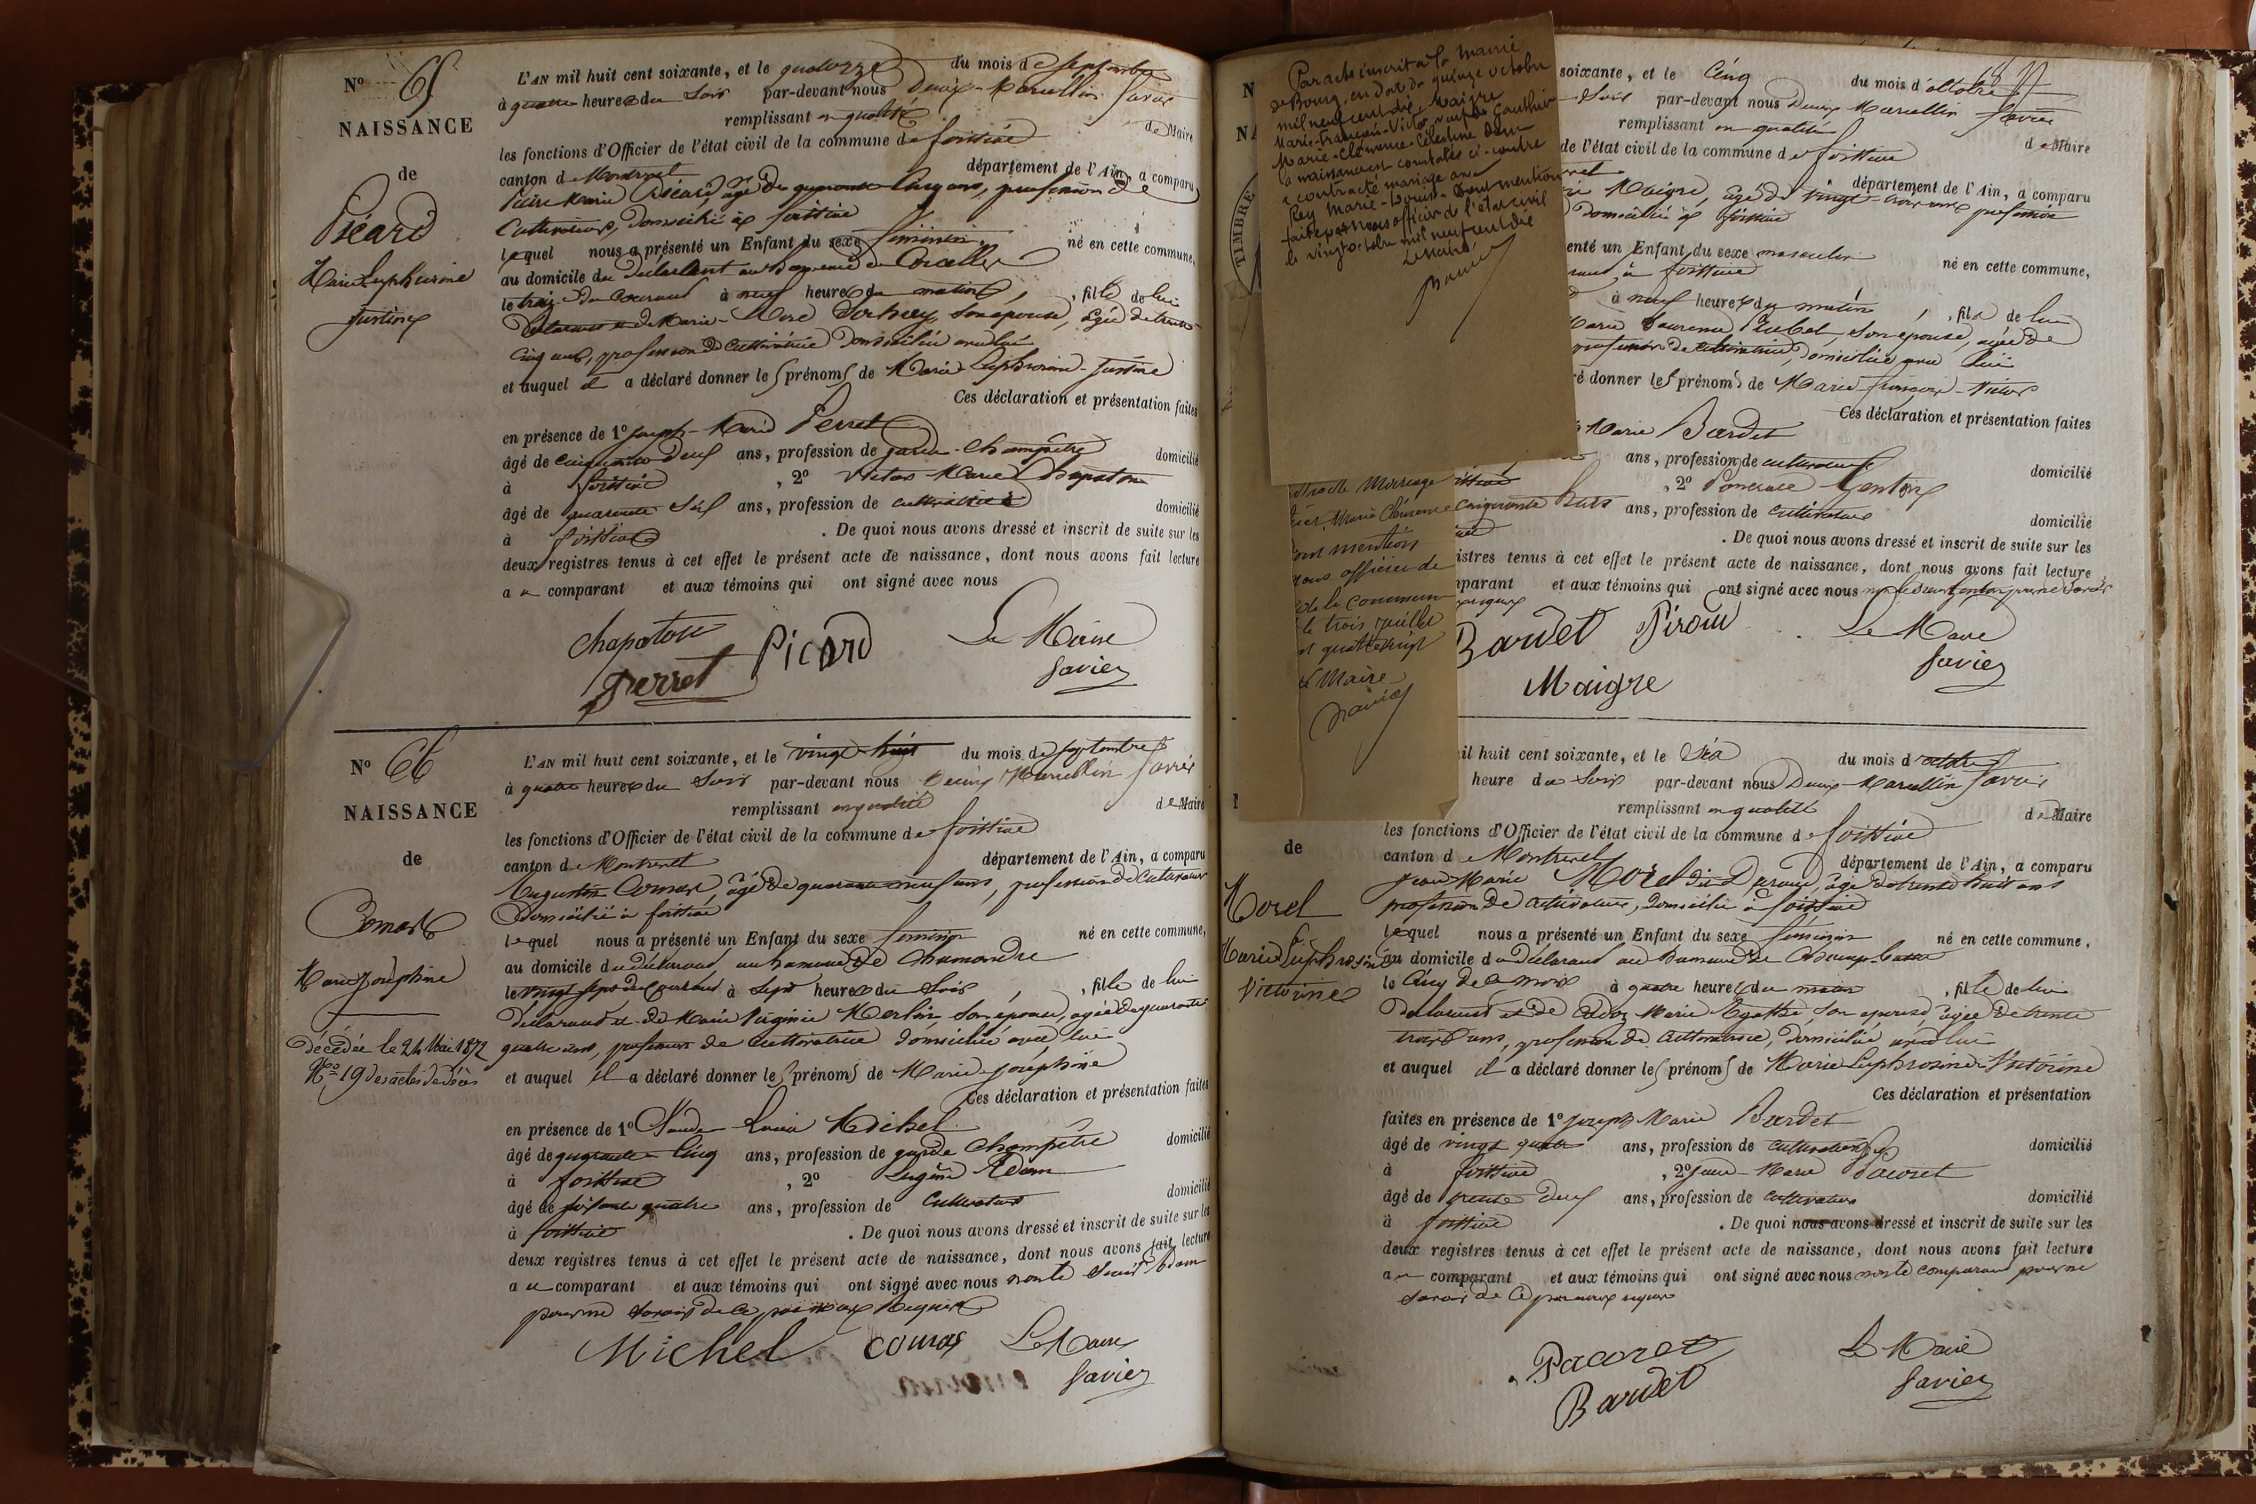 N° 65
NAISSANCE
de
Picard
Marie Euphrosine
Justine
L'AN mil huit cent soixante, et le quatorze du mois de septembre
à quatre heures du soir par-devant nous Denis-Marcellin Savier
remplissant en qualité de Maire
les fonctions d'Officier de l'état civil de la commune de foissiat
canton de Montrevel département de l'Ain, a comparu
Pierre Marie Picard, âgé de quarante cinq ans, profession de
Cultivateur, domicilié à foissiat
lequel nous a présenté un Enfant du sexe féminin, né en cette commune,
au domicile du déclarant au hameau de Corcelles
le treize du courant à neuf heures du matin, fille de lui
déclarant et de Marie-Rose son épouse, âgée de trente
cinq ans, profession de Cultivatrice domiciliée avec lui
et auquel il a déclaré donner les prénoms de Marie Euphrosine-Justine
Ces déclaration et présentation faites
en présence de 1° Joseph-Marie Perret
âgé de cinquante deux ans, profession de garde-Champêtre domicilié
à foissiat, 2° Victor-Marie Chapaton
âgé de quarante six ans, profession de cultivateur domicilié
à foissiat. De quoi nous avons dressé et inscrit de suite sur les
deux registres tenus à cet effet le présent acte de naissance, dont nous avons fait lecture
au comparant et aux témoins qui ont signé avec nous
Chapaton Picard Le Maire
Perret Savier
N° 66
NAISSANCE
de
Comas
Marie Joséphine
décédée le 24 Mai 1872
N° 19 des actes de décès
L'AN mil huit cent soixante, et le vingt-huit du mois de septembre
à quatre heures du soir par-devant nous Denis Marcellin Savier
remplissant en qualité de Maire
les fonctions d'Officier de l'état civil de la commune de foissiat
canton de Montrevel département de l'Ain, a comparu
Augustin Comas, âgé de quarante neuf ans, profession de Cultivateur
domicilié à foissiat
lequel nous a présenté un Enfant du sexe féminin né en cette commune,
au domicile du déclarant au hameau de Chamandre
le vingt sept du courant à sept heures du soir, fille de lui
déclarant et de Marie Virginie Merlin son épouse, âgée de quarante
quatre ans, profession de Cultivatrice domiciliée avec lui
et auquel il a déclaré donner les prénoms de Marie-Joséphine
Ces déclaration et présentation faites
en présence de 1° Claude Michel
âgé de quarante cinq ans, profession de garde Champêtre domicilié
à foissiat, 2° Eugène Adam
âgé de soixante quatre ans, profession de Cultivateur domicilié
à foissiat. De quoi nous avons dressé et inscrit de suite sur les
deux registres tenus à cet effet le présent acte de naissance, dont nous avons fait lecture
au comparant et aux témoins qui ont signé avec nous non le Adam
pour ne savoir de ce requis
Michel comas Le Maire
Savier
Par acte inscrit à la mairie
de Bourg, en date du quinze octobre
mil neuf cent dix, Maigre
Marie-François-Victor, veuf de Gauthier
Marie-Clémence-Célestine dont
la naissance est constatée ci-contre
a contracté mariage avec
Rey Marie-Louise. Dont mention
faite par nous officier de l'état civil
le vingt octobre mil neuf cent dix
Le Maire
tracté Mariage
Marie Clémence
Dont mention
nous officier de
de la commune
le trois juillet
quatre vingt
Le Maire
TIMBRE
soixante, et le Cinq du mois d'octobre
soir par-devant nous Denis Marcellin Savier
remplissant en qualité de Maire
de l'état civil de la commune de foissiat
département de l'Ain, a comparu
Maigre, âgé de vingt-trois ans profession
domicilié à foissiat
enté un Enfant du sexe masculin né en cette commune,
à foissiat
à neuf heures du matin, fils de lui
Marie son épouse, âgée de
profession de cultivatrice, domiciliée avec lui
ré donner les prénoms de Marie-françois-Victor
Ces déclaration et présentation faites
Marie Bardet
ans, profession de cultivateur domicilié
, 2°
cinquante huit ans, profession de cultivateur domicilié
. De quoi nous avons dressé et inscrit de suite sur les
istres tenus à cet effet le présent acte de naissance, dont nous avons fait lecture
mparant et aux témoins qui ont signé avec nous
Bardet Le Maire
Maigre Savier
de
Morel
Marie Euphrosine
Victorine
il huit cent soixante, et le six du mois d'octobre
heure du soir par-devant nous Denis-Marcellin Savier
remplissant en qualité de Maire
les fonctions d'Officier de l'état civil de la commune de foissiat
canton de Montrevel département de l'Ain, a comparu
Jean Marie Morel dit Durand, âgé de trente huit ans
profession de cultivateur, domicilié à foissiat
lequel nous a présenté un Enfant du sexe féminin né en cette commune,
au domicile du déclarant au hameau de
le Cinq de ce mois à quatre heures du matin, fille de lui
déclarant et de Marie Agathe, son épouse, âgée de trente
trois ans, profession de cultivatrice, domiciliée avec lui
et auquel il a déclaré donner les prénoms de Marie Euphrosine-Victorine
Ces déclaration et présentation
faites en présence de 1° Joseph Marie Bardet
âgé de vingt quatre ans, profession de cultivateur domicilié
à foissiat, 2° Jean-Marie Pacoret
âgé de trente deux ans, profession de cultivateur domicilié
à foissiat. De quoi nous avons dressé et inscrit de suite sur les
deux registres tenus à cet effet le présent acte de naissance, dont nous avons fait lecture
au comparant et aux témoins qui ont signé avec nous non le comparant pour ne
savoir de ce requis
Pacoret Le Maire
Bardet Savier